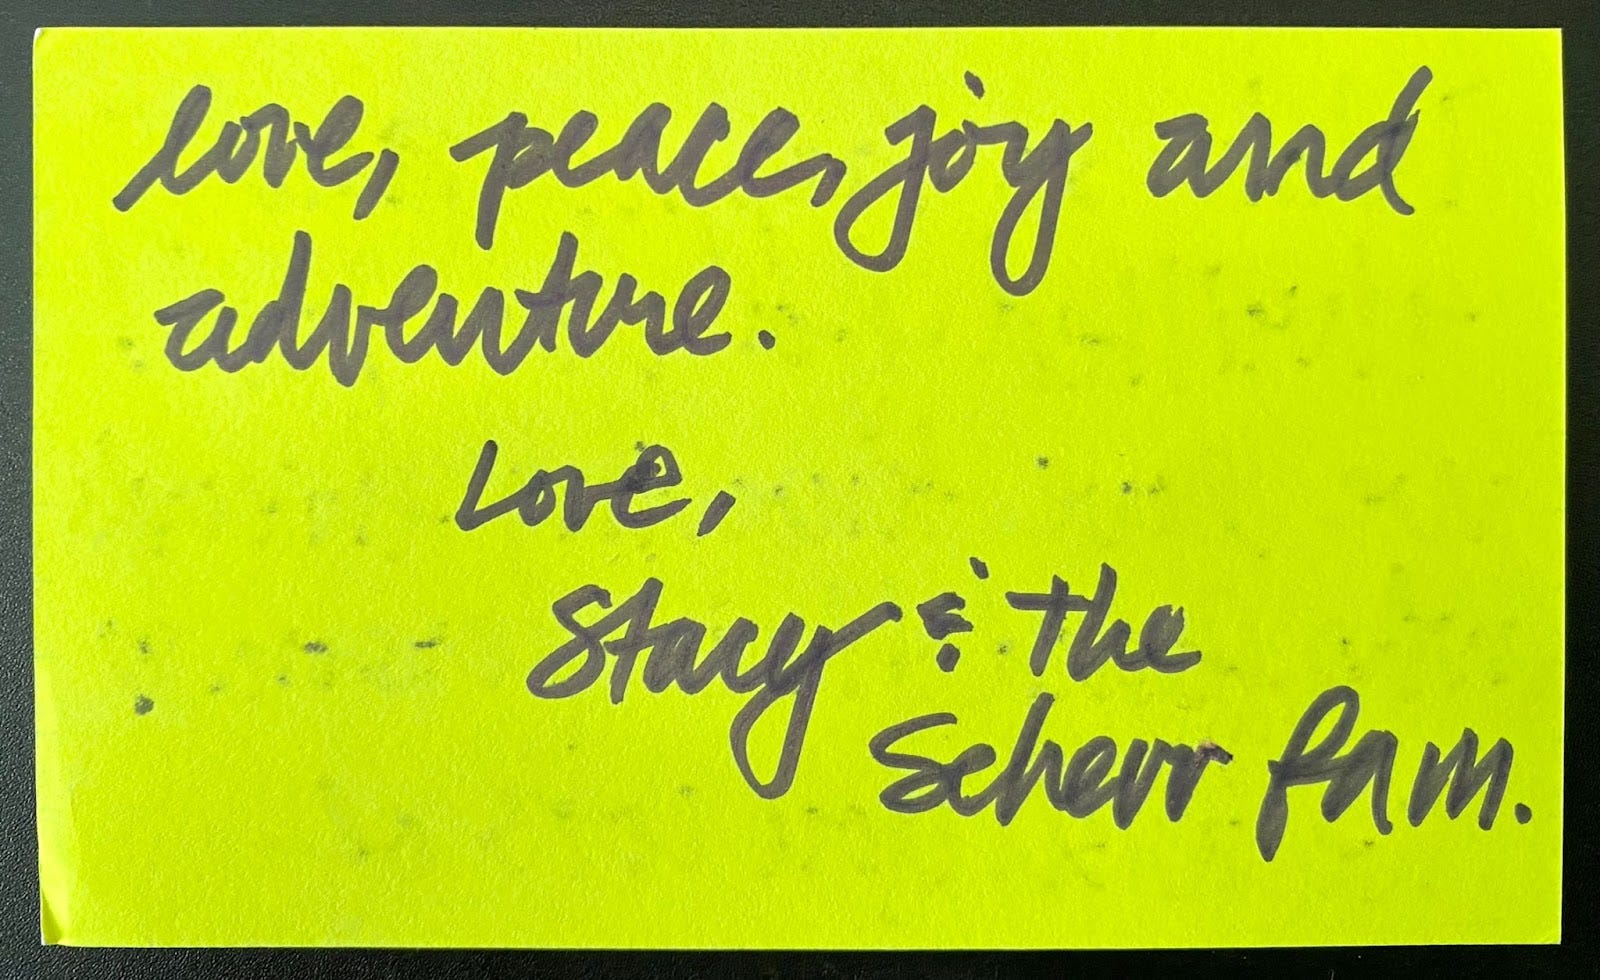 love, peace, joy and
adventure.
Love,
Stacy & the
Scherr fam.